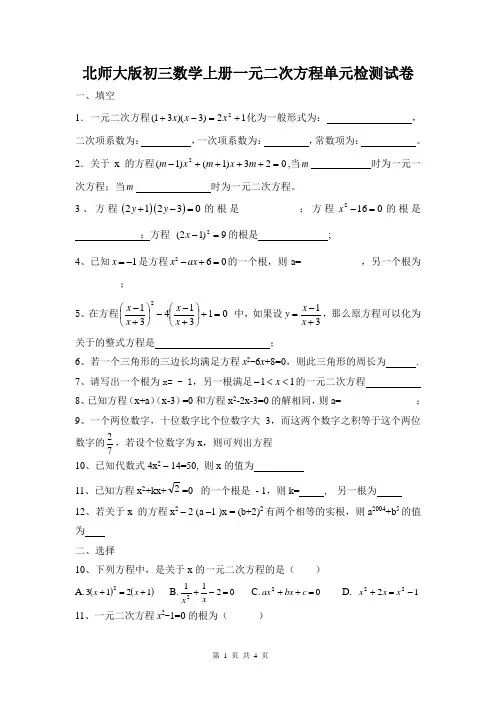 北师大版初三数学上册一元二次方程单元检测试卷
一、填空
1.一元二次方程(1+3x)(x−3)=2x²+1化为一般形式为: ,
二次项系数为: ,一次项系数为: ,常数项为: 。
2.关于x的方程(m−1)x²+(m+1)x+3m+2=0,当m 时为一元一
次方程;当m 时为一元二次方程。
3、方程(2y+1)(2y−3)=0的根是 ;方程x²−16=0的根是
;方程 (2x−1)²=9的根是 ;
4、已知x=−1是方程x²−ax+6=0的一个根,则a= ,另一个根为
;
5、在方程((x−1)/(x+3))²−4((x−1)/(x+3))+1=0 中,如果设y=(x−1)/(x+3),那么原方程可以化为
关于的整式方程是 ;
6、若一个三角形的三边长均满足方程x²−6x+8=0,则此三角形的周长为 .
7、请写出一个根为x= - 1,另一根满足−1<x<1的一元二次方程
8、已知方程(x+a)(x-3)=0和方程x²-2x-3=0的解相同,则a= ;
9、一个两位数字,十位数字比个位数字大3,而这两个数字之积等于这个两位
数字的2/7,若设个位数字为x,则可列出方程
10、已知代数式4x² – 14=50, 则x的值为
11、已知方程x²+kx+√2=0 的一个根是 - 1,则k= , 另一根为
12、若关于x 的方程x² – 2 (a –1 )x = (b+2)²有两个相等的实根,则a²⁰⁰⁴+b⁵的值
为
二、选择
10、下列方程中,是关于x的一元二次方程的是( )
A.3(x+1)²=2(x+1) B.1/x²+1/x−2=0 C.ax²+bx+c=0 D. x²+2x=x²−1
11、一元二次方程x²−1=0的根为( )
第 1 页 共 4 页